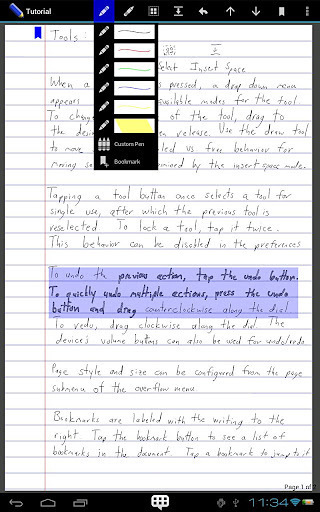 Tutorial
Tools:
Select Insert Space
When a pressed, a drop down menu
appears available modes for the tool.
To change of the tool, drag to
the desi en release. Use the draw tool
to move led vs. free behavior for
moving se mined by the insert space mode.
Custom Pen
Bookmark
Tapping a tool button once selects a tool for
single use, after which the previous tool is
reselected. To lock a tool, tap it twice.
This behavior can be disabled in the preferences
To undo the previous action, tap the undo button.
To quickly undo multiple actions, press the undo
button and drag counterclockwise along the dial
To redo, drag clockwise along the dial. The
device's volume buttons can also be used for undo/redo
Page style and size can be configured from the page
submenu of the overflow menu
Bookmarks are labeled with the writing to the
right. Tap the bookmark button to see a list of
bookmarks in the document. Tap a bookmark to jump to it
Page 1 of
11:34